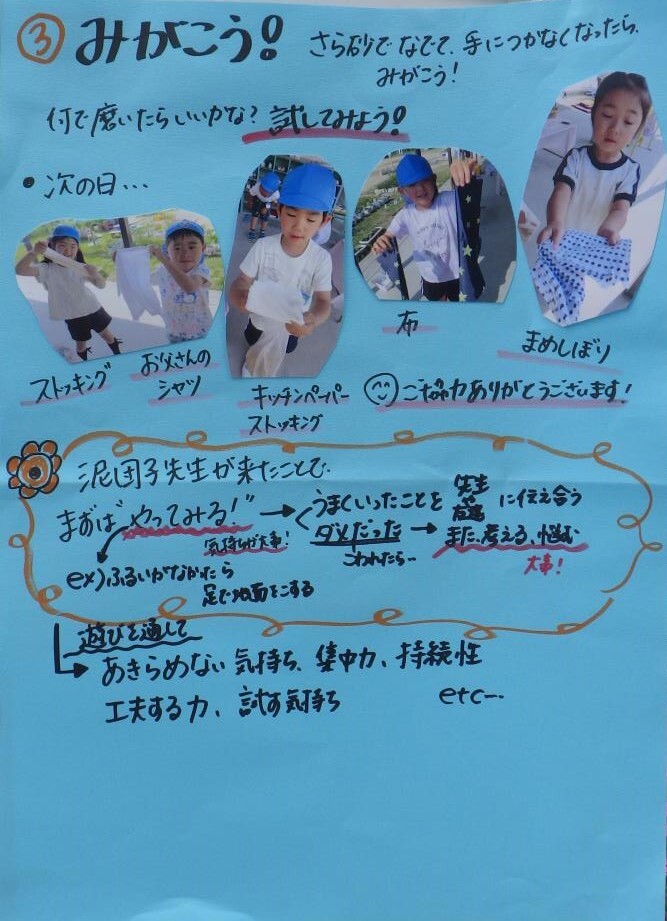 ③ みがこう!
さら砂でなでて、手につかなくなったら、
みがこう!
何で磨いたらいいかな? 試してみよう!
• 次の日…
ストッキング
お父さんの
シャツ
キッチンペーパー
ストッキング
布
まめしぼり
ご協力ありがとうございます!
泥団子先生が来たことで
まずは"やってみる!"
気持ちが大事!
ex)ふるいがなかったら
足で地面をこする
うまくいったことを 先生 友達 に伝え合う
ダメだった → また、考える、悩む
こわれたら…
大事!
遊びを通して
あきらめない気持ち、集中力、持続性
工夫する力、試す気持ち etc…